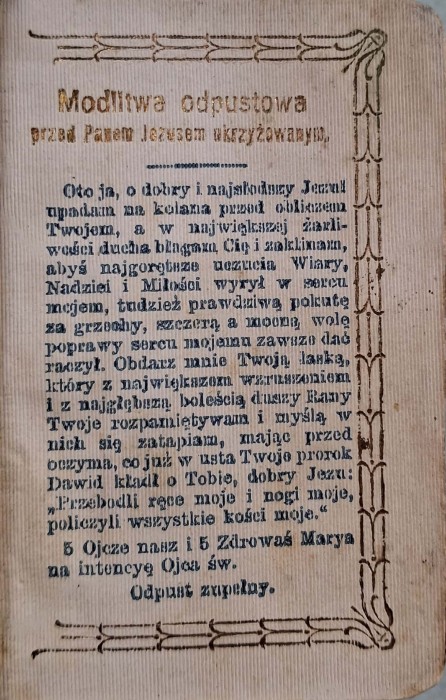 Modlitwa odpustowa
przed Panem Jezusem ukrzyżowanym.
Oto ja, o dobry i najsłodszy Jezu!
upadam na kolana przed obliczem
Twojem, a w największej żarli-
wości ducha błagam Cię i zaklinam,
abyś najgorętsze uczucia Wiary,
Nadziei i Miłości wyrył w sercu
mojem, tudzież prawdziwą pokutę
za grzechy, szczerą a mocną wolę
poprawy sercu mojemu zawsze dać
raczył. Obdarz mnie Twoją łaską,
który z największem wzruszeniem
i z najgłębszą boleścią duszy Rany
Twoje rozpamiętywam i myślą w
nich się zatapiam, mając przed
oczyma, co już w usta Twoje prorok
Dawid kładł o Tobie, dobry Jezu:
„Przebodli ręce moje i nogi moje,
policzyli wszystkie kości moje.“
5 Ojcze nasz i 5 Zdrowaś Marya
na intencyę Ojca św.
Odpust zupełny.